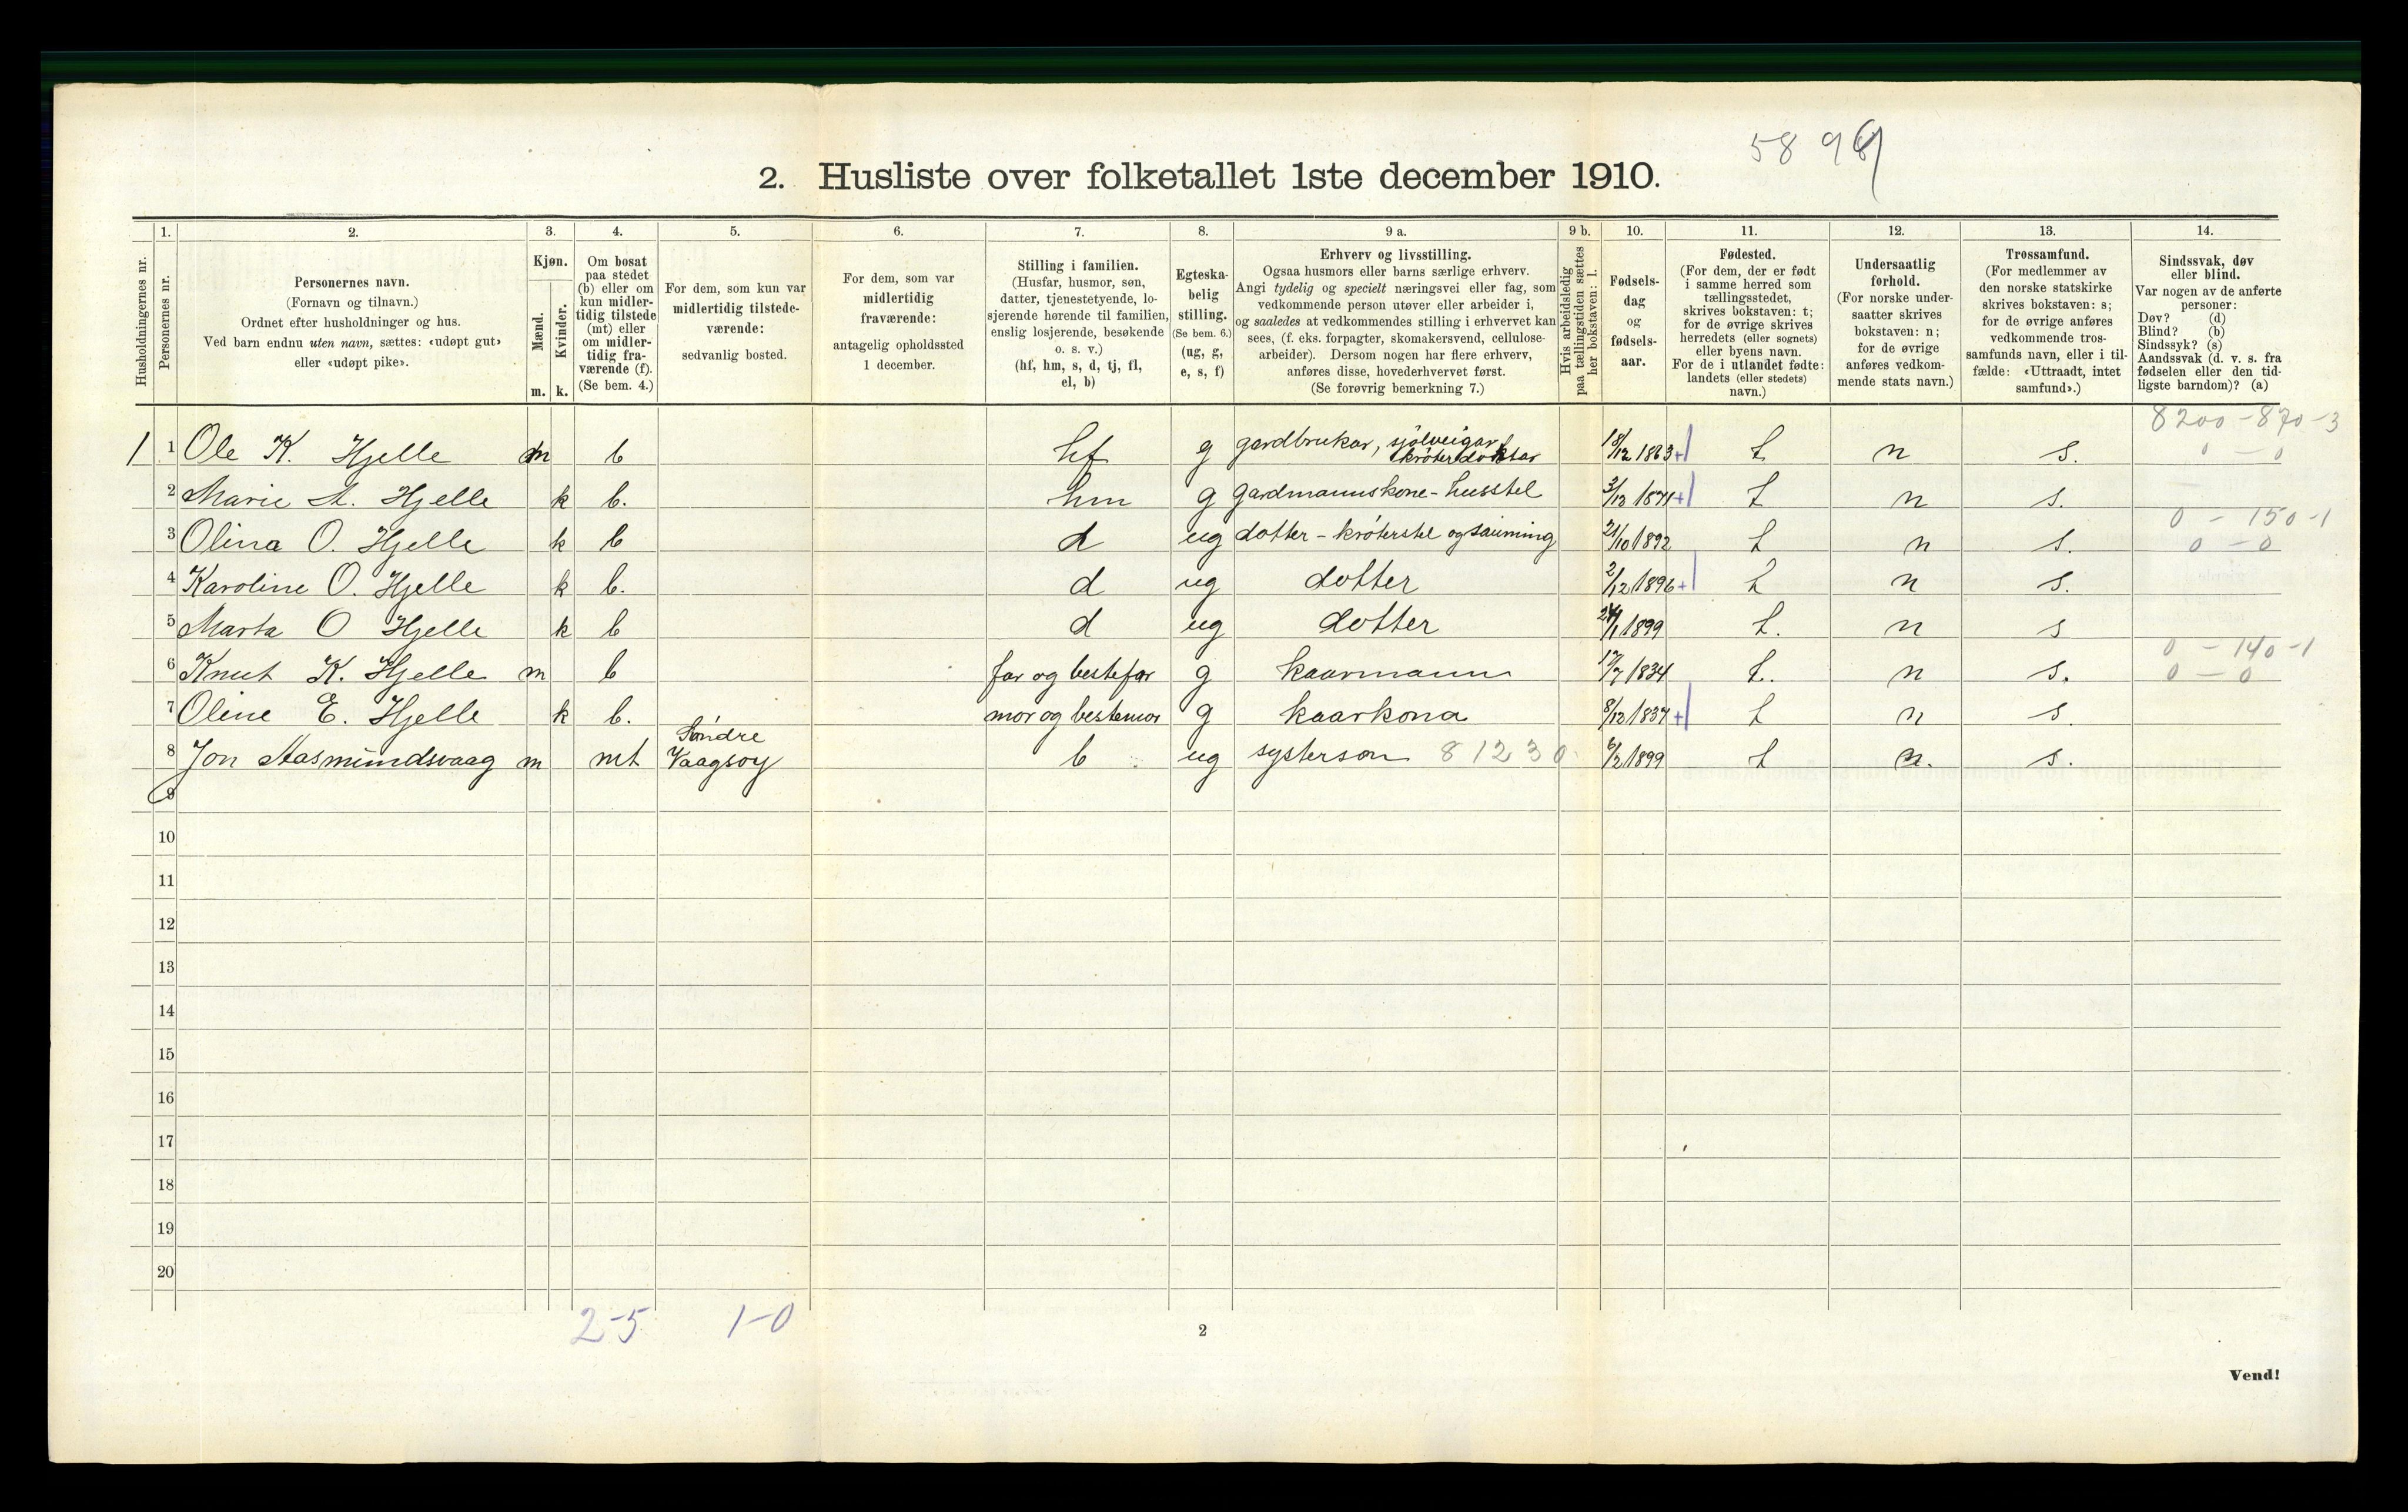 58 98
2. Husliste over folketallet 1ste december 1910.
Husholdningernes nr.
1.
Personernes nr.
2.
Personernes navn.
(Fornavn og tilnavn.)
Ordnet efter husholdninger og hus.
Ved barn endnu uten navn, sættes: «udøpt gut»
eller «udøpt pike».
3.
Kjøn.
Mænd.
Kvinder.
m. k.
4.
Om bosat
paa stedet
(b) eller om
kun midler-
tidig tilstede
(mt) eller
om midler-
tidig fra-
værende (f).
(Se bem. 4.)
5.
For dem, som kun var
midlertidig tilstede-
værende:
sedvanlig bosted.
6.
For dem, som var
midlertidig
fraværende:
antagelig opholdssted
1 december.
7.
Stilling i familien.
(Husfar, husmor, søn,
datter, tjenestetyende, lo-
sjerende hørende til familien,
enslig losjerende, besøkende
o. s. v.)
(hf, hm, s, d, tj, fl,
el, b)
8.
Egteska-
belig
stilling.
(Se bem. 6.)
(ug, g,
e, s, f)
9 a.
Erhverv og livsstilling.
Ogsaa husmors eller barns særlige erhverv.
Angi tydelig og specielt næringsvei eller fag, som
vedkommende person utøver eller arbeider i,
og saaledes at vedkommendes stilling i erhvervet kan
sees, (f. eks. forpagter, skomakersvend, cellulose-
arbeider). Dersom nogen har flere erhverv,
anføres disse, hovederhvervet først.
(Se forøvrig bemerkning 7.)
9 b.
Hvis arbeidsledig
paa tællingstiden sættes
her bokstaven: l.
10.
Fødsels-
dag
og
fødsels-
aar.
11.
Fødested.
(For dem, der er født
i samme herred som
tællingsstedet,
skrives bokstaven: t;
for de øvrige skrives
herredets (eller sognets)
eller byens navn.
For de i utlandet fødte:
landets (eller stedets)
navn.)
12.
Undersaatlig
forhold.
(For norske under-
saatter skrives
bokstaven: n;
for de øvrige
anføres vedkom-
mende stats navn.)
13.
Trossamfund.
(For medlemmer av
den norske statskirke
skrives bokstaven: s;
for de øvrige anføres
vedkommende tros-
samfunds navn, eller i til-
fælde: «Uttraadt, intet
samfund».)
14.
Sindssvak, døv
eller blind.
Var nogen av de anførte
personer:
Døv? (d)
Blind? (b)
Sindssyk? (s)
Aandssvak (d. v. s. fra
fødselen eller den tid-
ligste barndom)? (a)
8200-870-3
1 1 Ole K. Hjelle m b hf g gardbrukar, sjölveigar krøterdoktar 18/12 1863 + t n s. 0 - 0
2 Marie A. Hjelle k b. hm g gardmannskone - husstel 3/12 1871 + t n s.
0 - 150 -1
3 Olina O. Hjelle k b d ug dotter - krøterstel og sauming 21/10 1892 t n s. 0 - 0
4 Karoline O. Hjelle k b. d ug dotter 2/12 1896 + t n s.
5 Marta O Hjelle k b d ug dotter 24/1 1899 t. n s
0 - 140 -1
6 Knut K. Hjelle m b far og bestefar g kaarmann 17/7 1834 t. n s. 0 - 0
7 Oline E. Hjelle k b. mor og bestemor g kaarkona 8/12 1837 + t n s.
Søndre
8 Jon Aasmundsvaag m mt Vaagsøy b ug systerson 81230 6/2 1899 t n. s.
9
10
11
12
13
14
15
16
17
18
19
20
2-5 1-0
2
Vend!